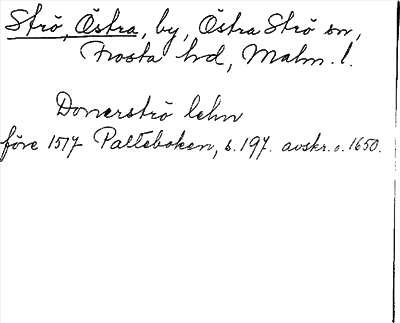 Strö, Östra, by, Östra Strö sn,
Frosta hd, Malm. l.
Donerströ lehn
före 1517 Palteboken, s. 197. avskr. o. 1650.